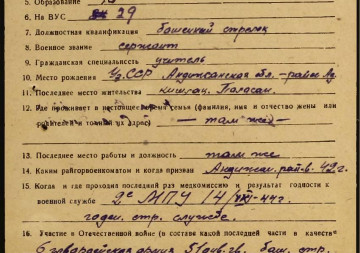 5. Образование
6. На ВУС № 29
7. Должностная квалификация башенный стрелок
8. Военное звание сержант
9. Гражданская специальность учитель
10. Место рождения Уз.ССР Андижанская обл.
11. Последнее место жительства кишлац. Паласан.
12. Где проживает в настоящее время семья (фамилия, имя и отчество жены или
родителей и точный их адрес) — там же —
13. Последнее место работы и должность там же
14. Каким райгорвоенкоматом и когда призван Андижан. рай.в. 42 г.
15. Когда и где проходил последний раз медкомиссию и результат годности к
военной службе 2е МПУ 14/VIII-44г.
годен. стр. службе.
16. Участие в Отечественной войне (в составе какой последней части в качестве
6 гвардейская армия 51 див. гв. баш. стр.